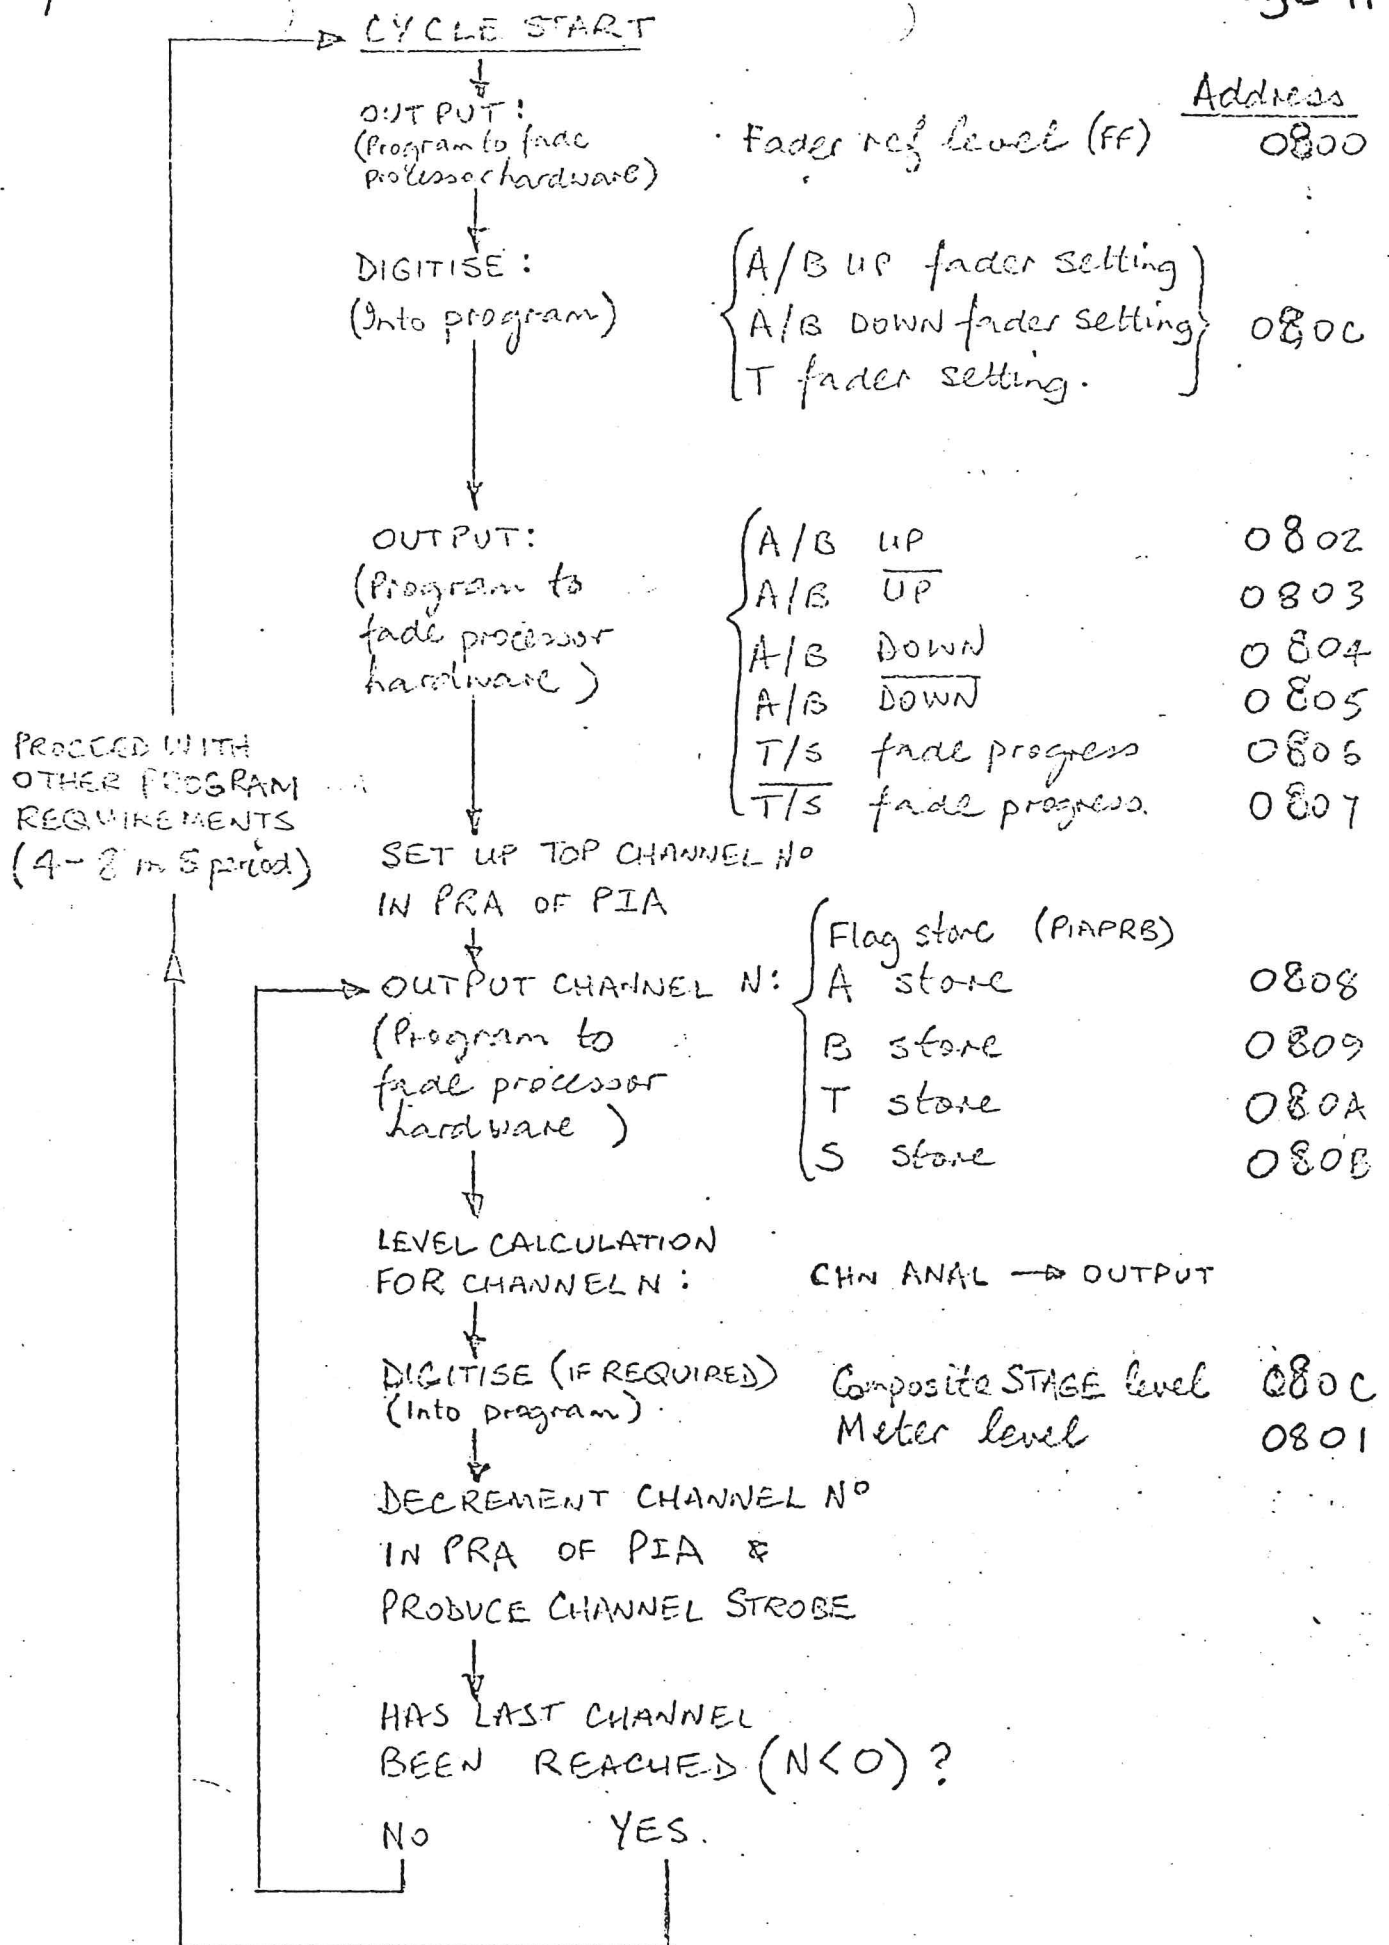 CYCLE START
Address
OUTPUT:
(Program to fade
processor hardware)
Fader ref level (FF) 0800
DIGITISE:
(Into program)
A/B UP fader setting
A/B DOWN fader setting 080C
T fader setting.
OUTPUT:
(Program to
fade processor
hardware)
A/B UP 0802
A/B UP 0803
A/B DOWN 0804
A/B DOWN 0805
T/S fade progress 0806
T/S fade progress. 0807
PROCEED WITH
OTHER PROGRAM
REQUIREMENTS
(4-8 mS period)
SET UP TOP CHANNEL No
IN PRA OF PIA
OUTPUT CHANNEL N:
(Program to
fade processor
hardware)
Flag store (PIAPRB)
A store 0808
B store 0809
T store 080A
S store 080B
LEVEL CALCULATION
FOR CHANNEL N: CHN ANAL → OUTPUT
DIGITISE (IF REQUIRED) Composite STAGE level 080C
(Into program). Meter level 0801
DECREMENT CHANNEL No
IN PRA OF PIA &
PRODUCE CHANNEL STROBE
HAS LAST CHANNEL
BEEN REACHED (N<0)?
NO YES.